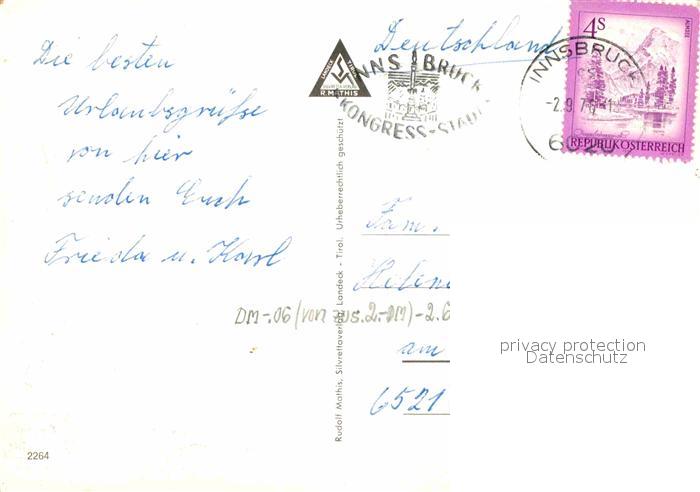 Die besten
Urlaubsgrüße
von hier
senden Euch
Frieda u. Karl
Deutschland
LANDECK TIROL
R. MATHIS
INNSBRUCK
KONGRESS-STADT
INNSBRUCK
-2.9.7
6020
4S
ALMSEE
REPUBLIK ÖSTERREICH
Fam.
Helen
am
6521
DM-.06 (von zus. 2.-DM) - 2.6
Rudolf Mathis, Silvrettaverlag, Landeck - Tirol. Urheberrechtlich geschützt!
privacy protection
Datenschutz
2264